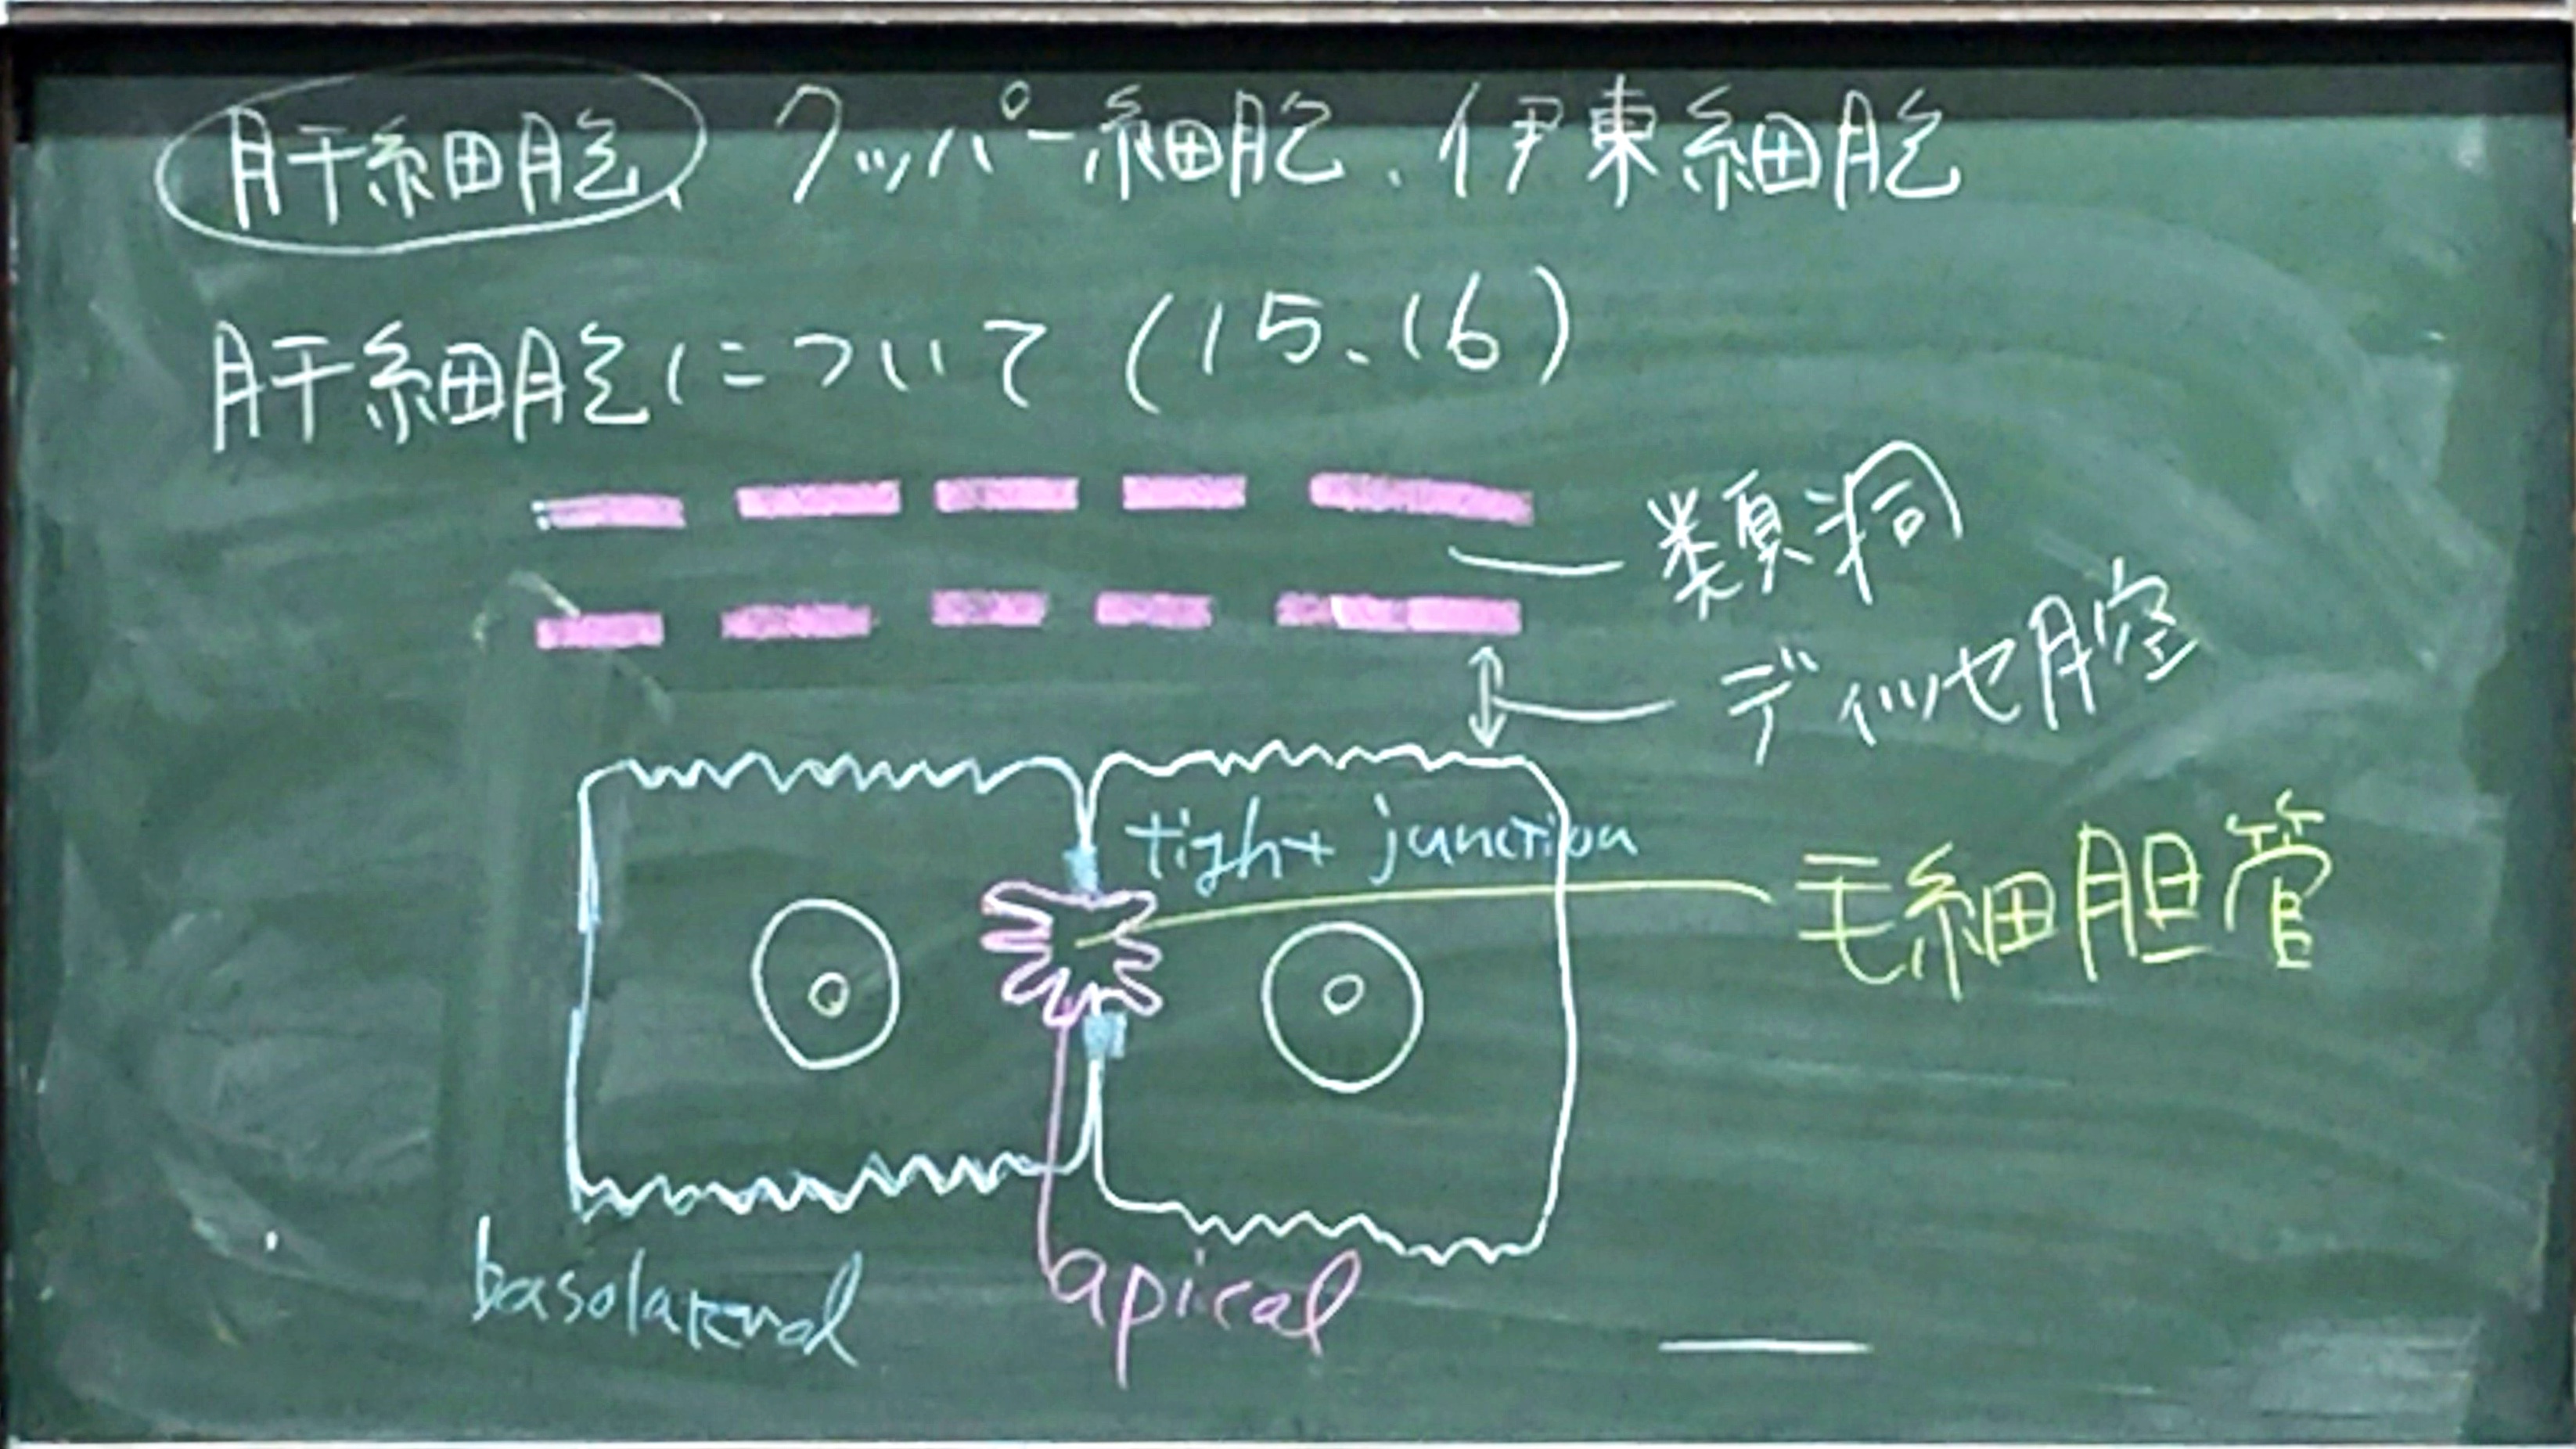 肝細胞、クッパー細胞、伊東細胞
肝細胞について(15、16)
類洞
ディッセ腔
tight junction
毛細胆管
basolateral
apical